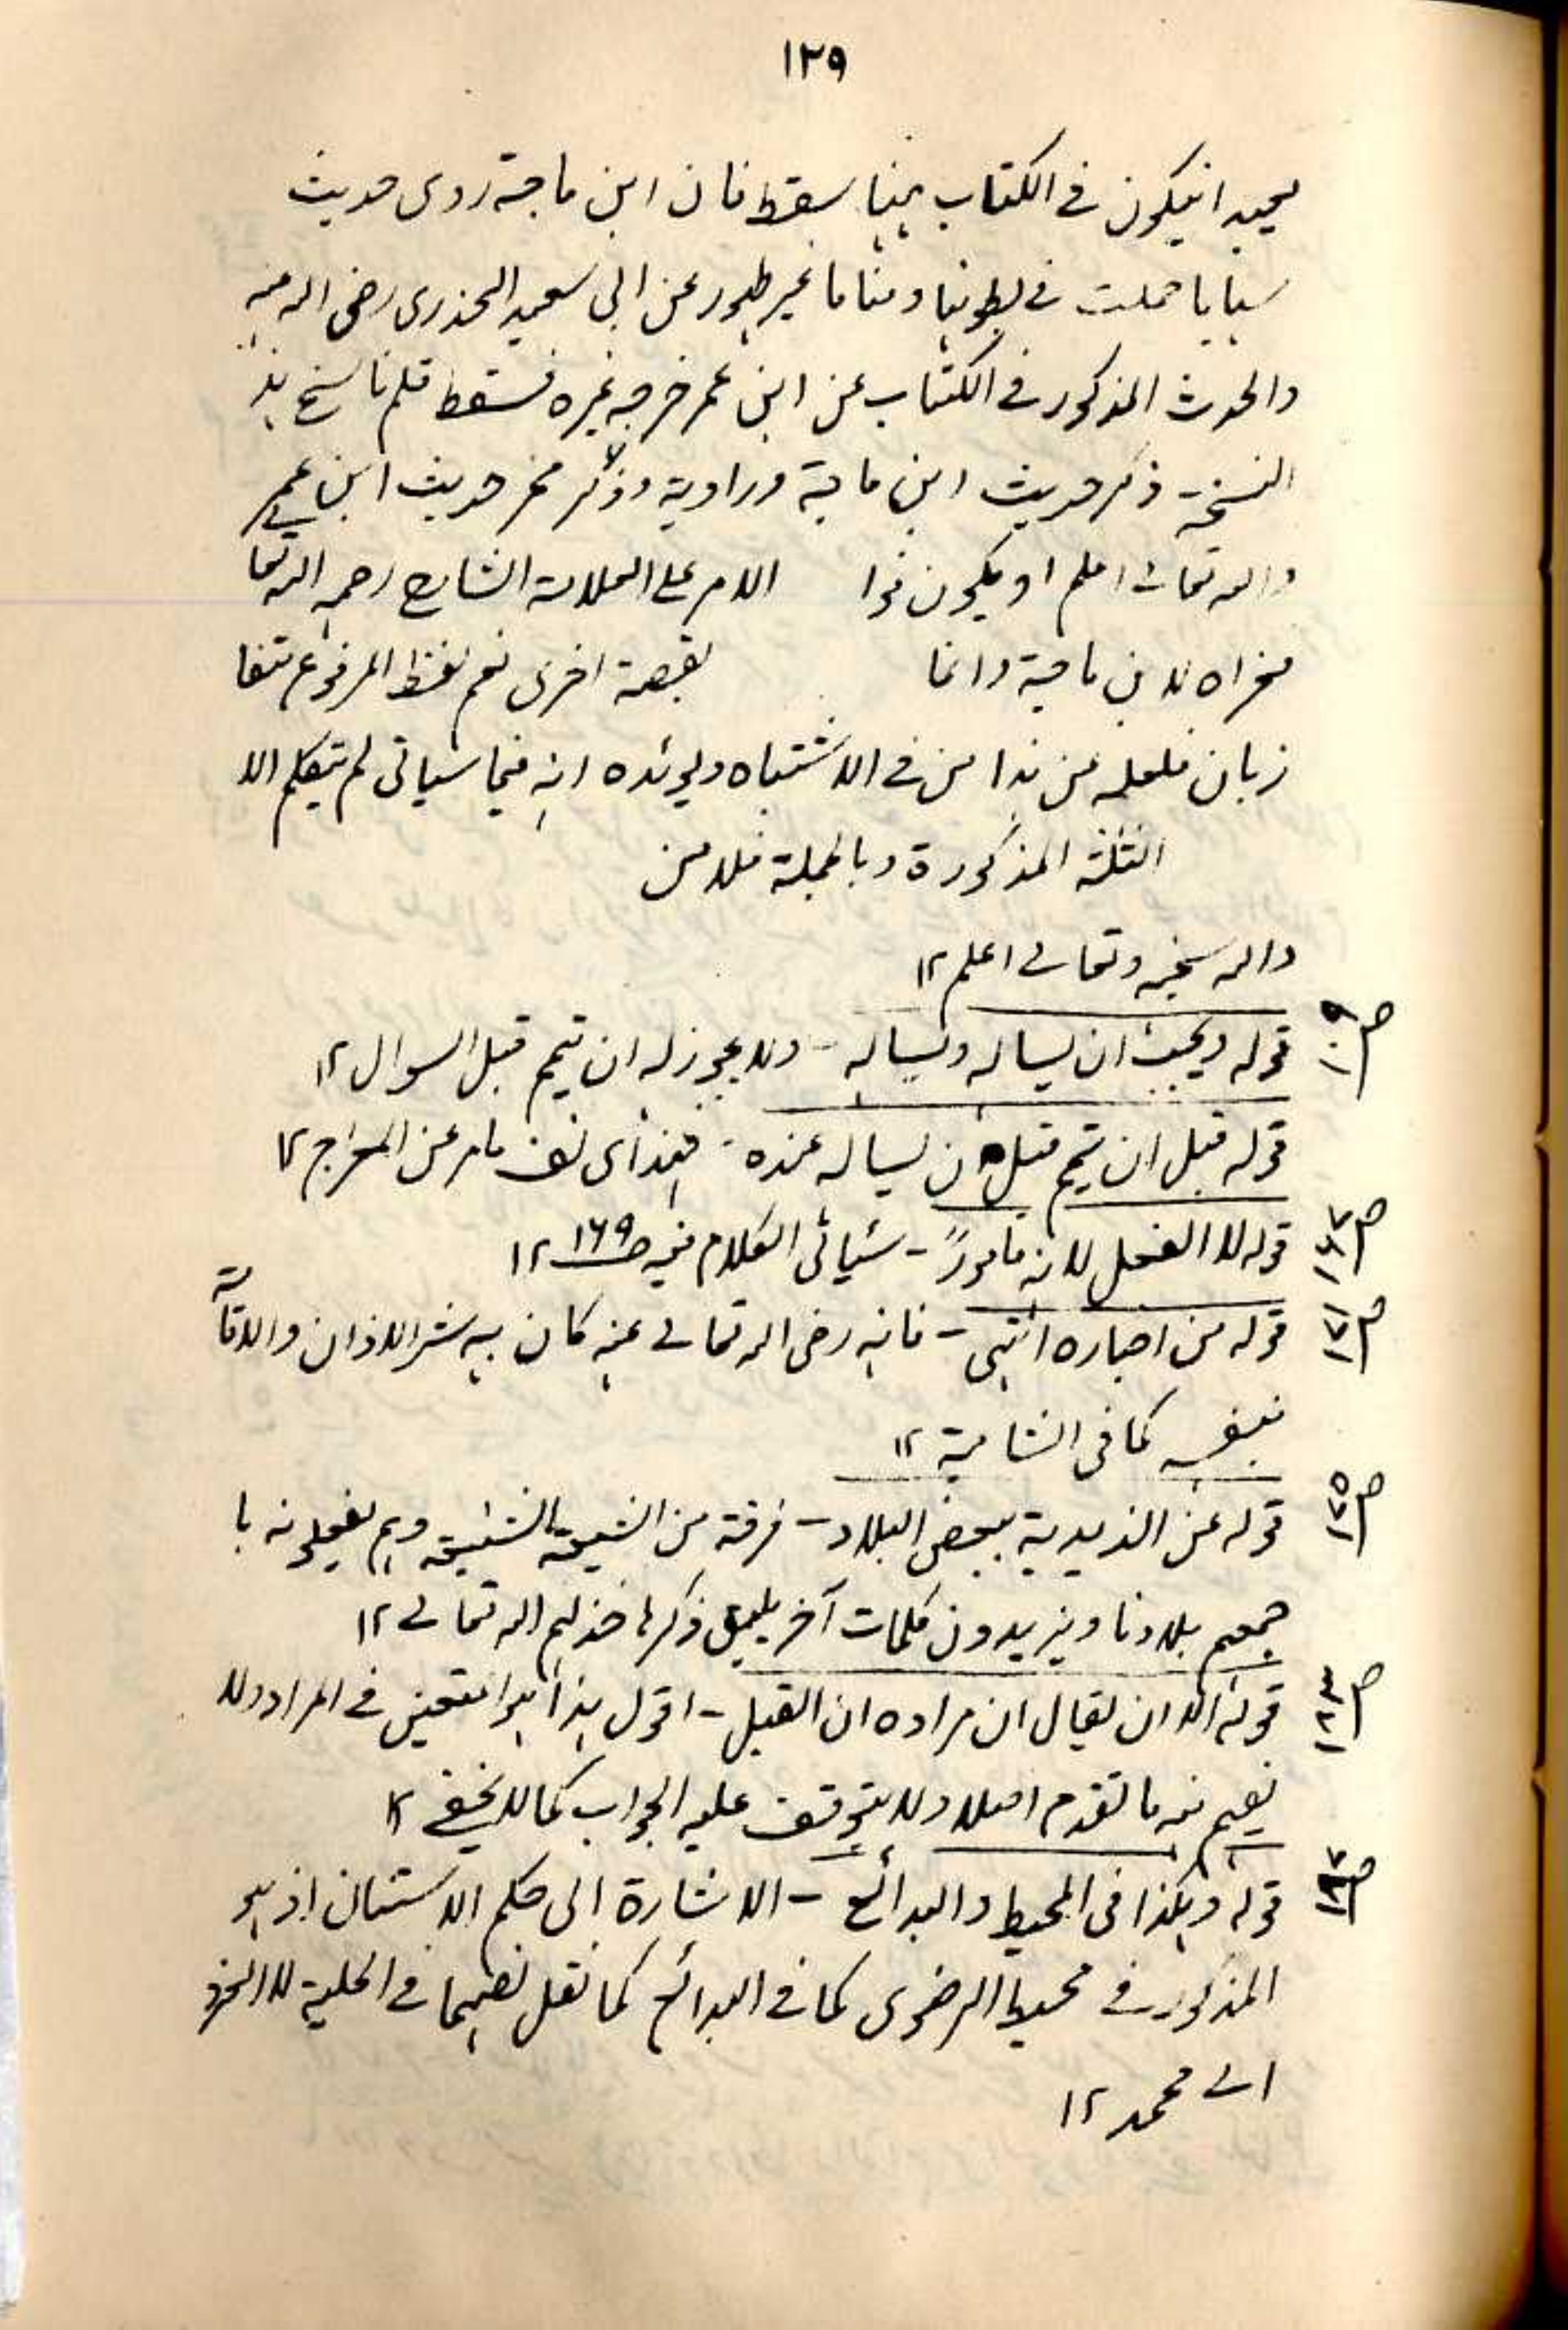 ١٢٩
انيكون فى الكتاب ههنا سقط فان ابن ماجة روى حديث
حملت فى بطونها ومنا ما غير طهور عن ابى سعيد الخدرى رضى الله عنه
والحديث المذكور فى الكتاب عن ابن عمر خرجه غيره فسقط قلم ناسخ هذه
النسخة ذكر حديث ابن ماجة وراويه وذكر مخرج حديث ابن عمر
والله تعالى اعلم او يكون هذا الامر على العلامة الشارح رحمه الله تعا
فعزاه لابن ماجة وانما بقصة اخرى نعم لفظ المرفوع
فلعله من هذا فى الاشتباه ويؤيده انه فيما سياتى لم يتكلم الا
الثلثة المذكورة وبالجملة فلا من
والله سبحنه وتعالى اعلم ١٢
ص١٠٩ قوله ويجب ان يساله ويساله – ولا يجوز له ان تيمم قبل السوال ١٢
قوله قبل ان تيمم قبل ان يساله عنده – فهذا اى نص مامر عن المعراج ١٢
قوله لا الفعل لانه مامورً – سياتى الكلام فيه ص١٦٩ ١٢
ص١٧١ قوله من اخباره انتهى – فانه رضى الله تعالى عنه كان يباشر الاذان والاقامة
بنفسه كما فى الشامية ١٢
ص١٧٥ قوله عن الزيدية ببعض البلاد – فرقة من الشيعة الشنيعة وهم يفعلونه با
جمعهم ببلادنا ويزيدون كلمات آخر يليق ذكرها خذلهم الله تعالى ١٢
قوله الا ان يقال ان مراده ان القبل – اقول هذا هو المتعين فى المراد ولا
يفهم منه ما تقدم اصلا ولا يتوقف عليه الجواب كما لا يخفى ١٢
قوله وهكذا فى المحيط والبدائع – الاشارة الى حكم الاستنان اذ هو
المذكور فى محيط الرضوى كما فى البدائع كما نقل نصهما فى الحلية لا العزو
الى محمد ١٢